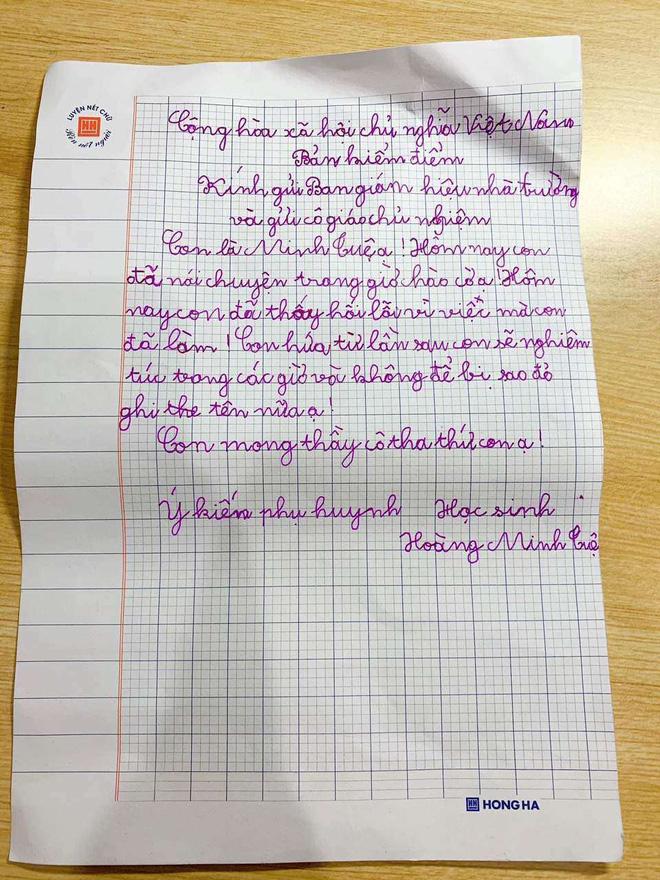 LUYỆN NÉT CHỮ
Rèn nết người
Cộng hòa xã hội chủ nghĩa Việt Nam
Bản kiểm điểm
Kính gửi Ban giám hiệu nhà trường
và gửi cô giáo chủ nghiệm
Con là Minh Tuệ ạ! Hôm nay con
đã nói chuyện trong giờ chào cờ ạ! Hôm
nay con đã thấy hối lỗi vì việc mà con
đã làm! Con hứa từ lần sau con sẽ nghiêm
túc trong các giờ và không để bị sao đỏ
ghi the tên nữa ạ!
Con mong thầy cô tha thứ con ạ!
Ý kiến phụ huynh Học sinh
Hoàng Minh Tuệ
HH HONG HA